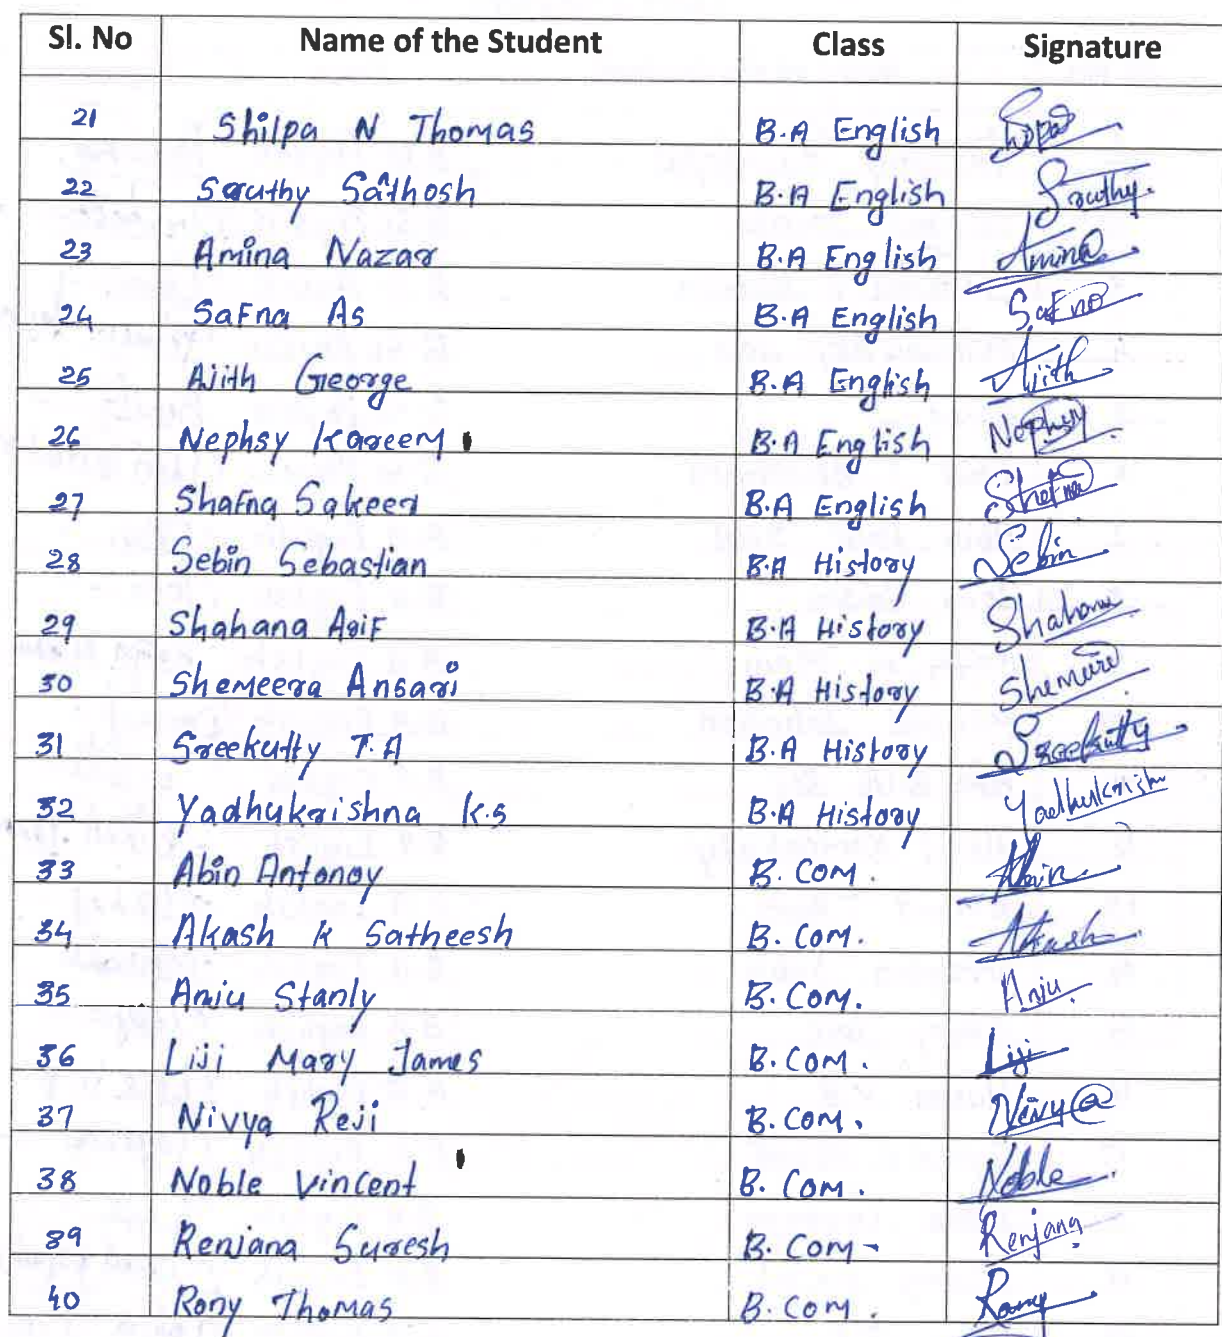 Sl. No Name of the Student Class Signature
21 Shilpa N Thomas B.A English Shilpa
22 Sruthy Sathosh B.A English Sruthy.
23 Amina Nazar B.A English Amina
24 Safna As B.A English Safna
25 Ajith George B.A English Ajith
26 Nephsy Kareem B.A English Nephsy
27 Shafna Sakeer B.A English Shafna
28 Sebin Sebastian B.A History Sebin
29 Shahana Asif B.A History Shahana
30 Shemeera Ansari B.A History Shemeera
31 Sreekutty T.A B.A History Sreekutty
32 Yadhukrishna K.S B.A History Yadhukrishn
33 Abin Antonoy B. Com. Abin
34 Akash K Satheesh B. Com. Akash
35 Anju Stanly B. Com. Anju
36 Liji Mary James B. Com. Liji
37 Nivya Reji B. Com. Nivya
38 Noble Vincent B. Com. Noble
39 Renjana Suresh B. Com- Renjana
40 Rony Thomas B. Com. Rony